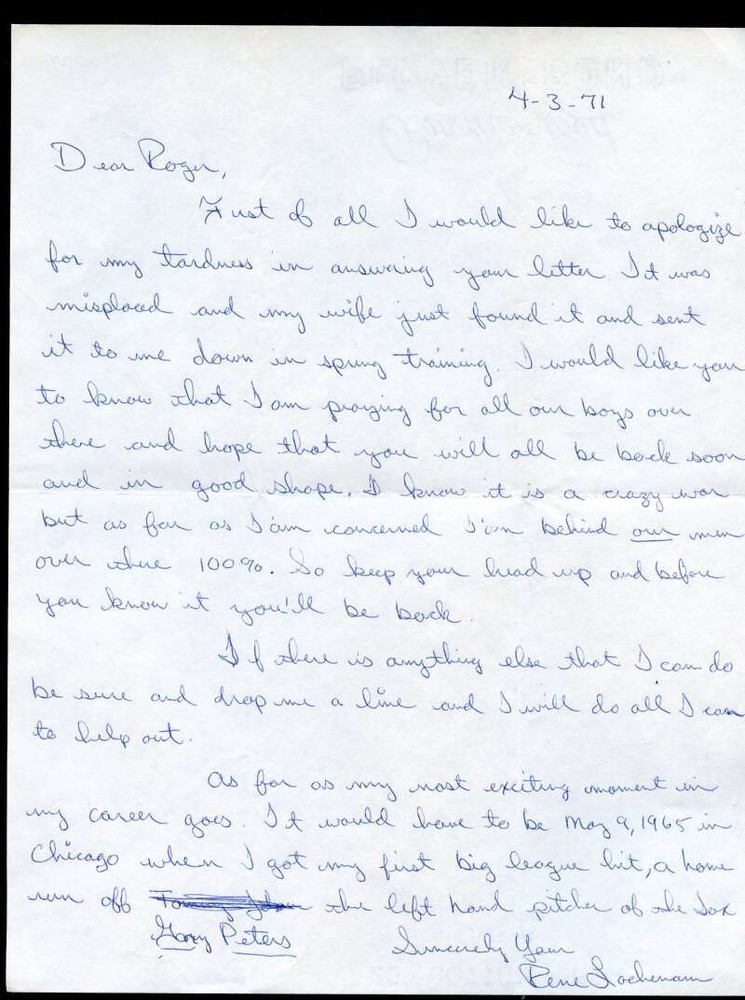 4-3-71
Dear Roger,
First of all I would like to apologize
for my tardness in answering your letter. It was
misplaced and my wife just found it and sent
it to me down in spring training. I would like you
to know that I am praying for all our boys over
there and hope that you will all be back soon
and in good shape. I know it is a crazy war
but as far as I am concerned I'm behind our men
over there 100%. So keep your head up and before
you know it you'll be back.
If there is anything else that I can do
be sure and drop me a line and I will do all I can
to help out.
As far as my most exciting moment in
my career goes. It would have to be May 9, 1965 in
Chicago when I got my first big league hit, a home
run off Tommy John the left hand pitcher of the Sox
Gary Peters
Sincerely Your
Rene Lachemann